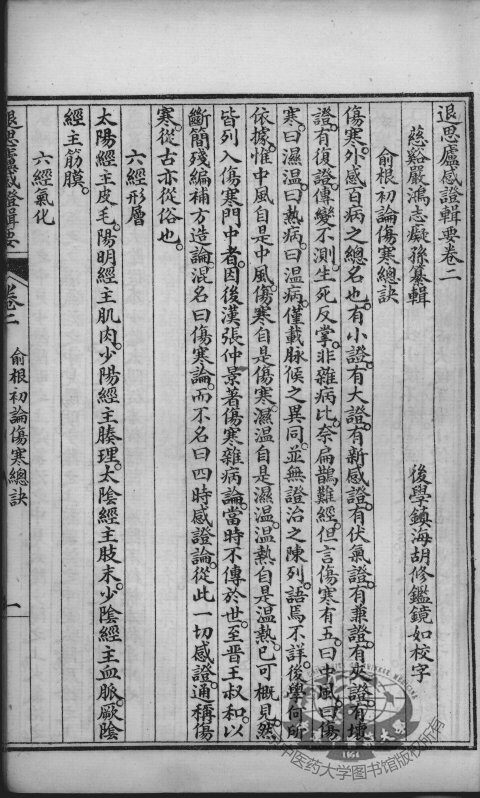 退思廬感證輯要卷二
慈谿嚴鴻志癡孫纂輯　後學鎮海胡修鑑鏡如校字
俞根初論傷寒總訣
傷寒。外感百病之總名也。有小證。有大證。有新感證。有伏氣證。有兼證。有夾證。有壞
證。有復證。傳變不測。生死反掌。非雜病比。奈扁鵲難經。但言傷寒有五。曰中風。曰傷
寒。曰濕溫。曰熱病。曰溫病。僅載脉候之異同。並無證治之陳列。語焉不詳。後學何所
依據。惟中風自是中風。傷寒自是傷寒。濕溫自是濕溫。溫熱自是溫熱。已可概見。然
皆列入傷寒門中者。因後漢張仲景著傷寒雜病論。當時不傳於世。至晋王叔和。以
斷簡殘編補方造論。混名曰傷寒論。而不名曰四時感證論。從此一切感證。通稱傷
寒。從古亦從俗也。
六經形層
太陽經主皮毛。陽明經主肌肉。少陽經主腠理。太陰經主肢末。少陰經主血脈。厥陰
經主筋膜。
六經氣化
退思廬感證輯要　卷二　俞根初論傷寒總訣　一
中医药大学图书馆版权所有